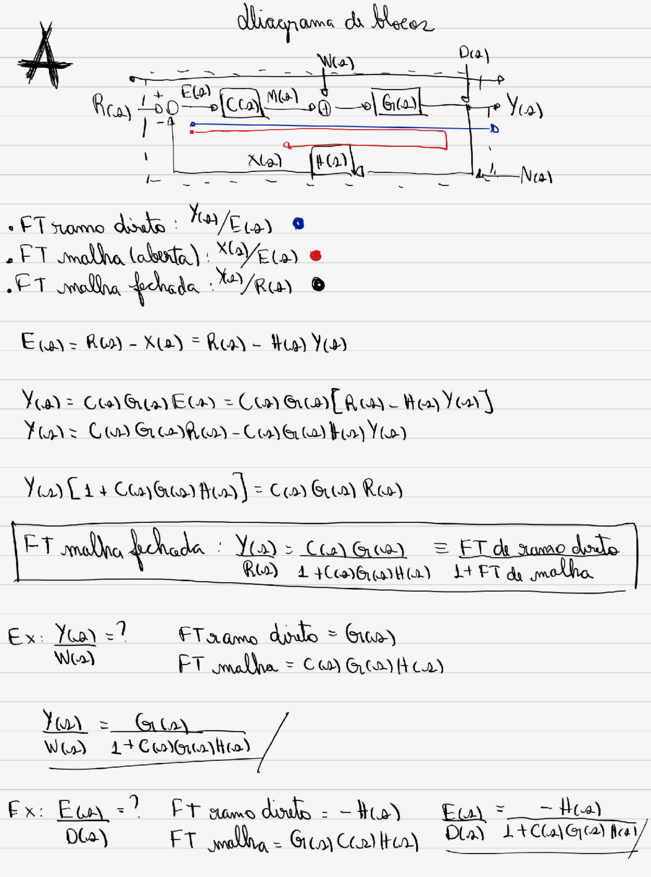 Diagrama de blocos
A
W(s) D(s)
R(s) + - E(s) C(s) M(s) + G(s) Y(s)
X(s) H(s) N(s)
• FT ramo direto: Y(s)/E(s)
• FT malha (aberta): X(s)/E(s)
• FT malha fechada: Y(s)/R(s)
E(s) = R(s) - X(s) = R(s) - H(s) Y(s)
Y(s) = C(s) G(s) E(s) = C(s) G(s) [R(s) - H(s) Y(s)]
Y(s) = C(s) G(s) R(s) - C(s) G(s) H(s) Y(s)
Y(s) [1 + C(s) G(s) H(s)] = C(s) G(s) R(s)
FT malha fechada: Y(s)/R(s) = C(s) G(s)/1 + C(s) G(s) H(s) ≡ FT de ramo direto/1 + FT de malha
Ex: Y(s)/W(s) = ? FT ramo direto = G(s)
FT malha = C(s) G(s) H(s)
Y(s)/W(s) = G(s)/1 + C(s) G(s) H(s)
Ex: E(s)/D(s) = ? FT ramo direto = - H(s) E(s)/D(s) = - H(s)/1 + C(s) G(s) H(s)
FT malha = G(s) C(s) H(s)